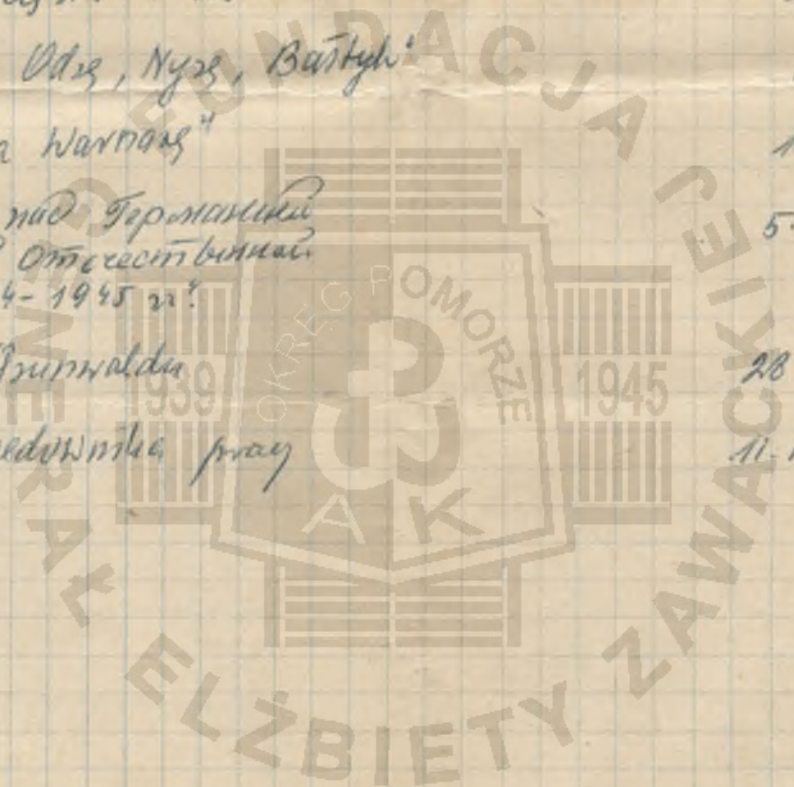 Odrę, Nysę, Bałtyk"
Warszawę" 1
над Германией 5-
Отечественной
4-1945 гг."
Grunwaldu 28
pracy 11-1
FUNDACJA GENERAŁ ELŻBIETY ZAWACKIEJ
OKRĘG POMORZE
1939 1945
AK